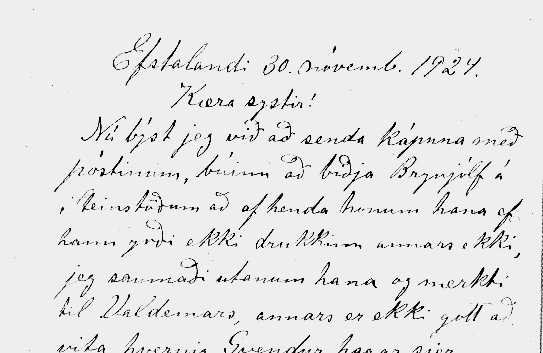 Efstalandi 30. nóvemb. 1924.
Kæra systir!
Nú býst jeg við að senda kápuna með
póstinum, búinn að biðja Brynjólf á
Steinstöðum að afhenda honum hana ef
hann yrði ekki drukkinn annars ekki,
jeg saumaði utanum hana og merkti
til Valdemars, annars er ekki gott að
vita hvernig Gvendur hagar sjer